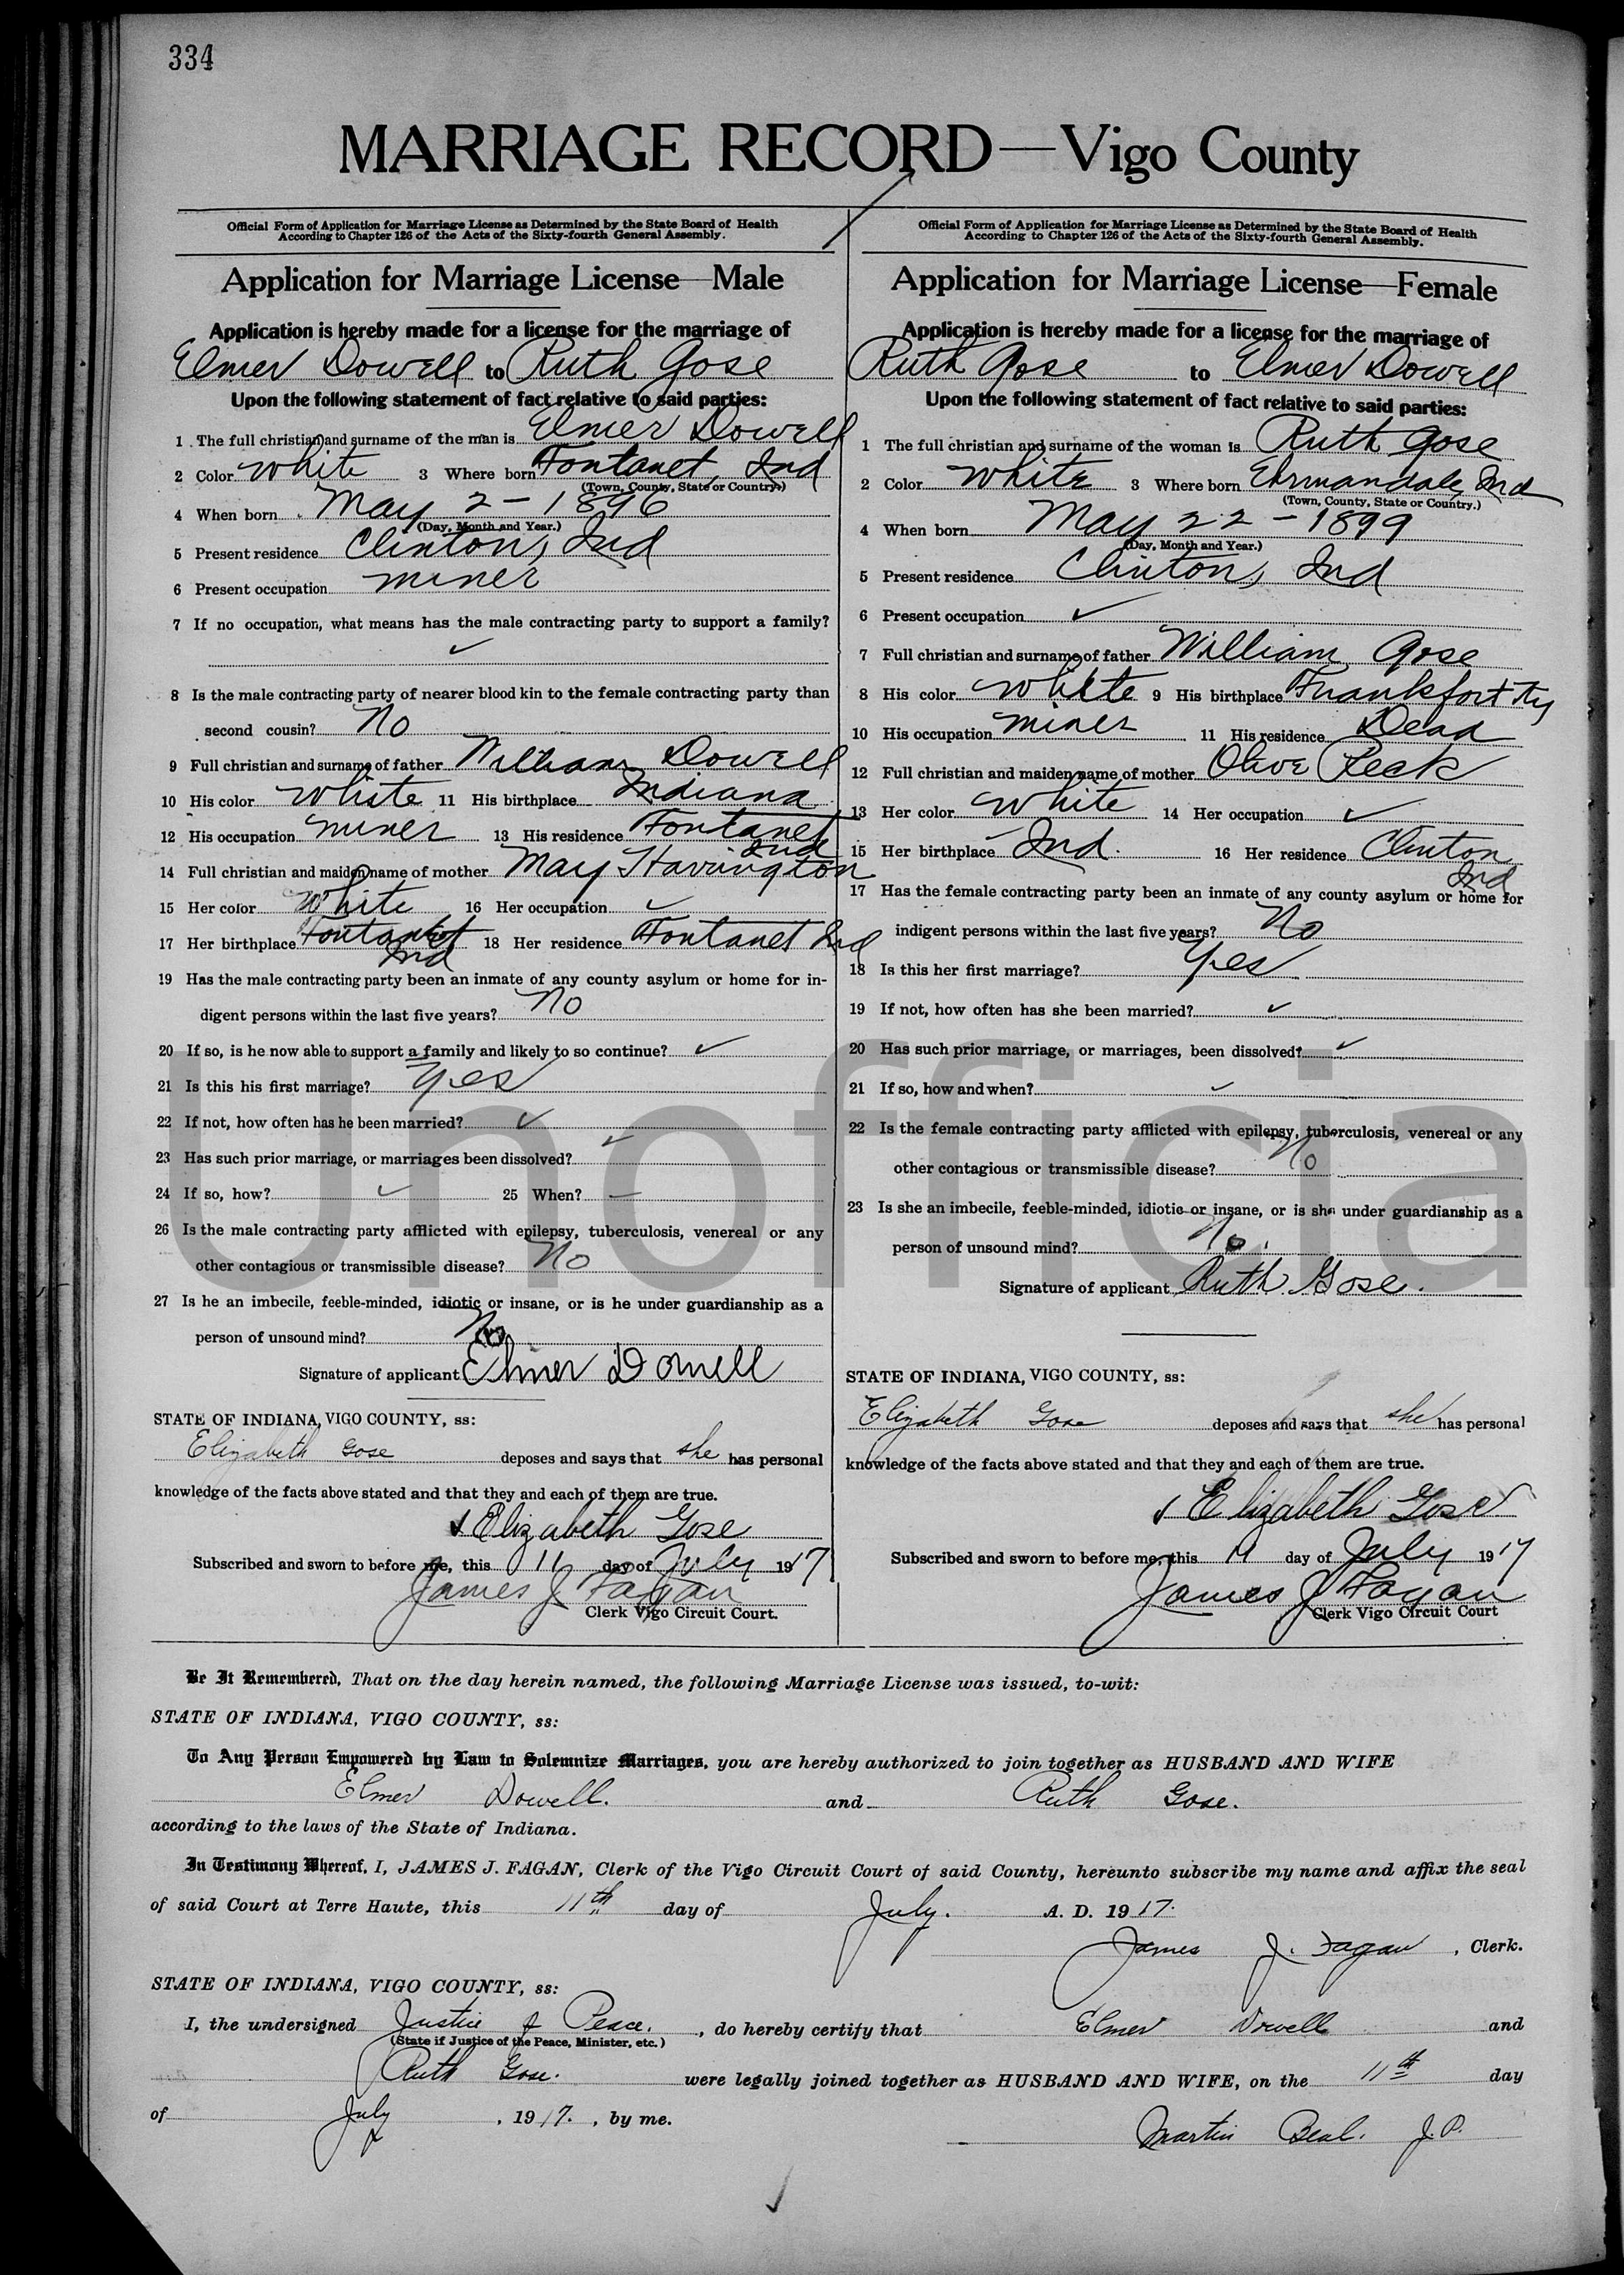 334
MARRIAGE RECORD—Vigo County
Official Form of Application for Marriage License as Determined by the State Board of Health
According to Chapter 126 of the Acts of the Sixty-fourth General Assembly.
Application for Marriage License—Male
Application is hereby made for a license for the marriage of
Elmer Dowell to Ruth Gose
Upon the following statement of fact relative to said parties:
1 The full christian and surname of the man is Elmer Dowell
2 Color White 3 Where born Fontanet, Ind
(Town, County, State or Country.)
4 When born May 2 - 1896
(Day, Month and Year.)
5 Present residence Clinton, Ind
6 Present occupation miner
7 If no occupation, what means has the male contracting party to support a family?
✓
8 Is the male contracting party of nearer blood kin to the female contracting party than
second cousin? No
9 Full christian and surname of father William Dowell
10 His color White 11 His birthplace Indiana
12 His occupation miner 13 His residence Fontanet
Ind
14 Full christian and maiden name of mother May Harrington
15 Her color White 16 Her occupation ✓
17 Her birthplace Fontanet 18 Her residence Fontanet Ind
Ind
19 Has the male contracting party been an inmate of any county asylum or home for in-
digent persons within the last five years? No
20 If so, is he now able to support a family and likely to so continue? ✓
21 Is this his first marriage? Yes
22 If not, how often has he been married? ✓
23 Has such prior marriage, or marriages been dissolved? ✓
24 If so, how? ✓ 25 When? —
26 Is the male contracting party afflicted with epilepsy, tuberculosis, venereal or any
other contagious or transmissible disease? No
27 Is he an imbecile, feeble-minded, idiotic or insane, or is he under guardianship as a
person of unsound mind? No
Signature of applicant Elmer Dowell
STATE OF INDIANA, VIGO COUNTY, ss:
Elizabeth Gose deposes and says that she has personal
knowledge of the facts above stated and that they and each of them are true.
✓ Elizabeth Gose
Subscribed and sworn to before me, this 11 day of July 1917
James J Fagan
Clerk Vigo Circuit Court.
Official Form of Application for Marriage License as Determined by the State Board of Health
According to Chapter 126 of the Acts of the Sixty-fourth General Assembly.
Application for Marriage License—Female
Application is hereby made for a license for the marriage of
Ruth Gose to Elmer Dowell
Upon the following statement of fact relative to said parties:
1 The full christian and surname of the woman is Ruth Gose
2 Color White 3 Where born Ehrmandale, Ind
(Town, County, State or Country.)
4 When born May 22 - 1899
(Day, Month and Year.)
5 Present residence Clinton, Ind
6 Present occupation ✓
7 Full christian and surname of father William Gose
8 His color White 9 His birthplace Frankfort Ky
10 His occupation miner 11 His residence Dead
12 Full christian and maiden name of mother Olive Reck
13 Her color White 14 Her occupation ✓
15 Her birthplace Ind. 16 Her residence Clinton
Ind
17 Has the female contracting party been an inmate of any county asylum or home for
indigent persons within the last five years? No
18 Is this her first marriage? Yes
19 If not, how often has she been married? ✓
20 Has such prior marriage, or marriages, been dissolved? ✓
21 If so, how and when? ✓
22 Is the female contracting party afflicted with epilepsy, tuberculosis, venereal or any
other contagious or transmissible disease? No
23 Is she an imbecile, feeble-minded, idiotic or insane, or is she under guardianship as a
person of unsound mind? No.
Signature of applicant Ruth Gose.
STATE OF INDIANA, VIGO COUNTY, ss:
Elizabeth Gose deposes and says that she has personal
knowledge of the facts above stated and that they and each of them are true.
✓ Elizabeth Gose
Subscribed and sworn to before me, this 11 day of July 1917
James J Fagan
Clerk Vigo Circuit Court
Be It Remembered, That on the day herein named, the following Marriage License was issued, to-wit:
STATE OF INDIANA, VIGO COUNTY, ss:
To Any Person Empowered by Law to Solemnize Marriages, you are hereby authorized to join together as HUSBAND AND WIFE
Elmer Dowell. and Ruth Gose.
according to the laws of the State of Indiana.
In Testimony Whereof, I, JAMES J. FAGAN, Clerk of the Vigo Circuit Court of said County, hereunto subscribe my name and affix the seal
of said Court at Terre Haute, this 11th day of July. A. D. 1917.
James J. Fagan, Clerk.
STATE OF INDIANA, VIGO COUNTY, ss:
I, the undersigned Justice of Peace., do hereby certify that Elmer Dowell and
(State if Justice of the Peace, Minister, etc.)
Ruth Gose. were legally joined together as HUSBAND AND WIFE, on the 11th day
of July, 1917., by me.
Martin Beal. J.P.
✓
Unofficial